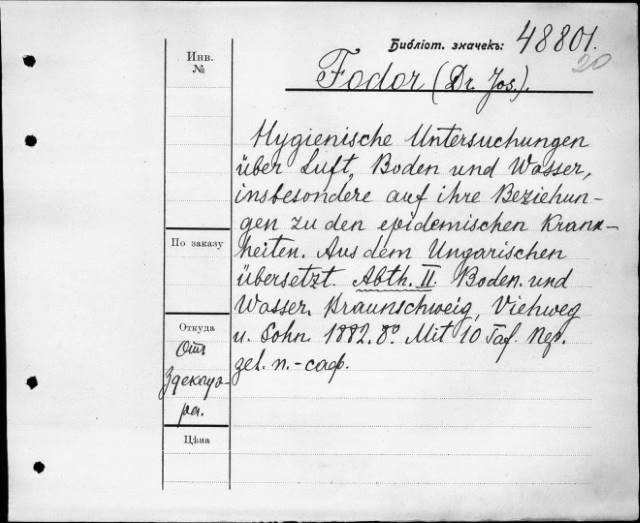 Библіот. значекъ: 48801.
20
Инв.
№
Fodor (Dr. Jos.).
Hygienische Untersuchungen
über Luft, Boden und Wasser,
insbesondere auf ihre Beziehun-
gen zu den epidemischen Krank-
heiten. Aus dem Ungarischen
übersetzt. Abth. II. Boden und
Wasser. Braunschweig, Viehweg
u. Sohn 1882. 8º. Mit 10 Taf. Пер.
zel. п.-саф.
По заказу
Откуда
Отъ
Здекауэ-
ра.
Цѣна